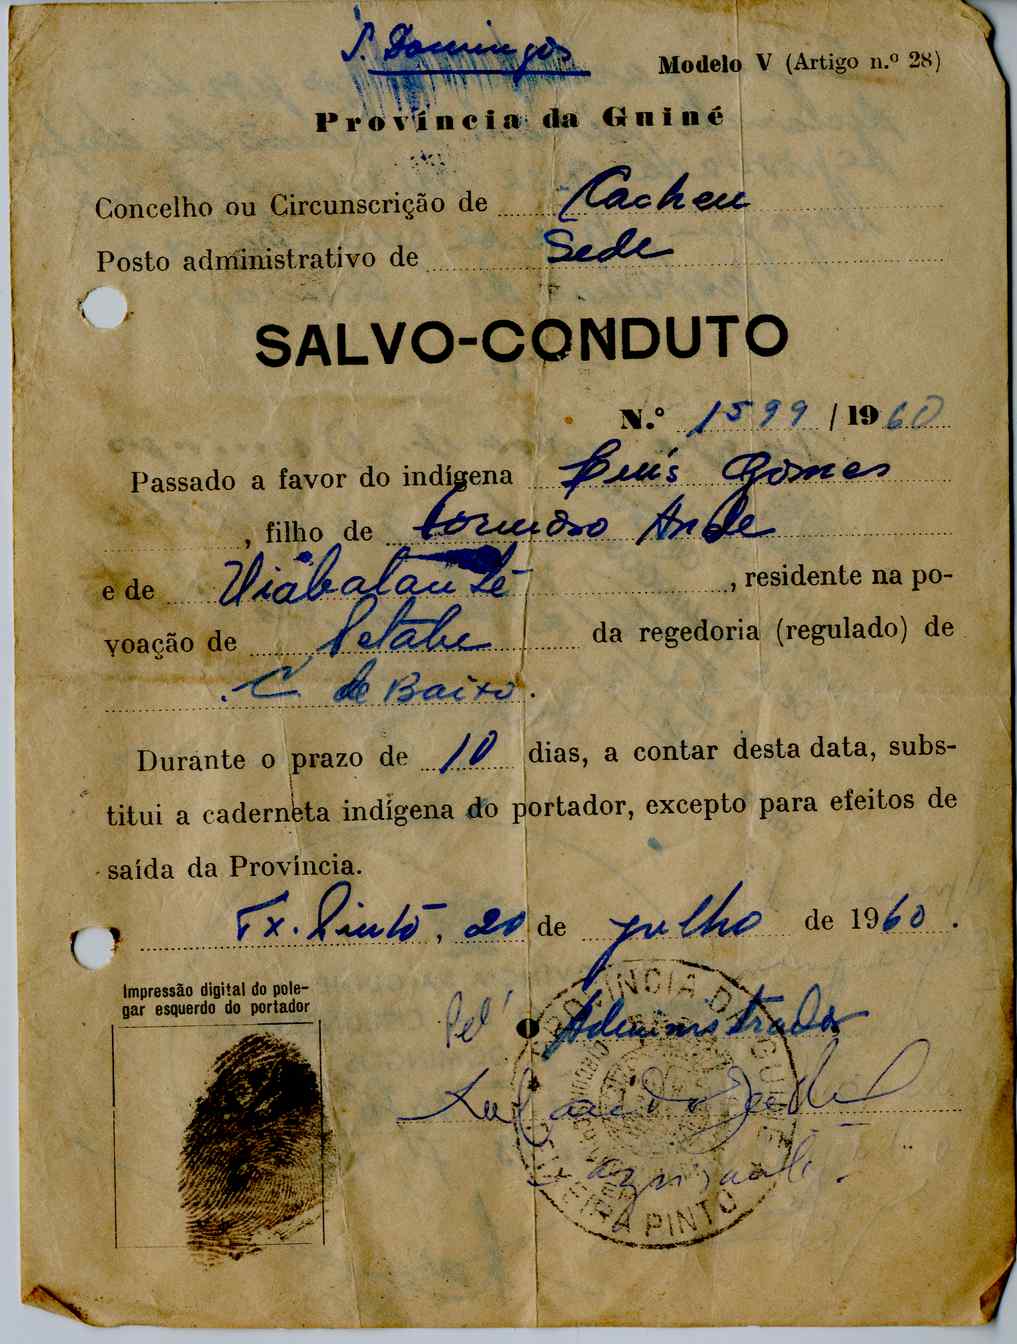 S. Domingos
Modelo V (Artigo n.º 28)
Província da Guiné
Concelho ou Circunscrição de Cacheu
Posto administrativo de Sede
SALVO-CONDUTO
N.º 1599 / 1960
Passado a favor do indígena Luís Gomes
, filho de Ande
e de , residente na po-
voação de Petabe da regedoria (regulado) de
C de Baixo.
Durante o prazo de 10 dias, a contar desta data, subs-
titui a caderneta indígena do portador, excepto para efeitos de
saída da Província.
Tx. Pinto, 20 de julho de 1960.
Impressão digital do pole-
gar esquerdo do portador
Pel' o Administrador
PROVÍNCIA DA GUINÉ
TEIXEIRA PINTO